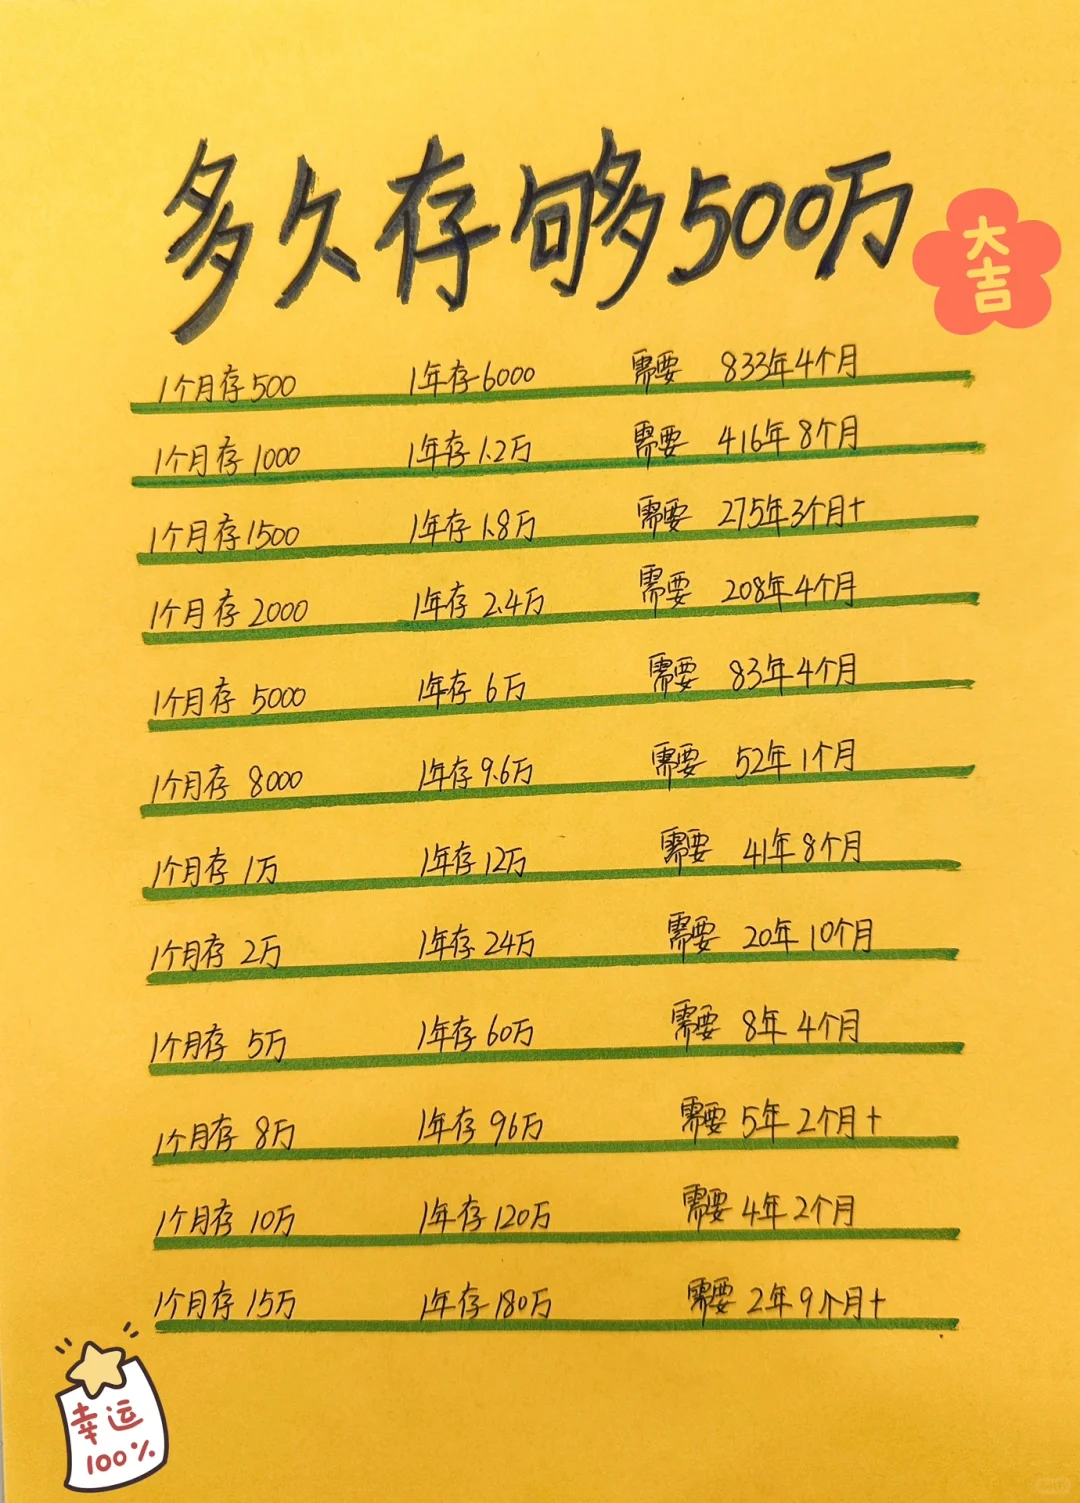 多久存够500万
大吉
1个月存500 1年存6000 需要 833年4个月
1个月存1000 1年存1.2万 需要 416年8个月
1个月存1500 1年存1.8万 需要 275年3个月+
1个月存2000 1年存2.4万 需要 208年4个月
1个月存5000 1年存6万 需要 83年4个月
1个月存8000 1年存9.6万 需要 52年1个月
1个月存1万 1年存12万 需要 41年8个月
1个月存2万 1年存24万 需要 20年10个月
1个月存5万 1年存60万 需要 8年4个月
1个月存8万 1年存96万 需要 5年2个月+
1个月存10万 1年存120万 需要 4年2个月
1个月存15万 1年存180万 需要 2年9个月+
幸运
100%